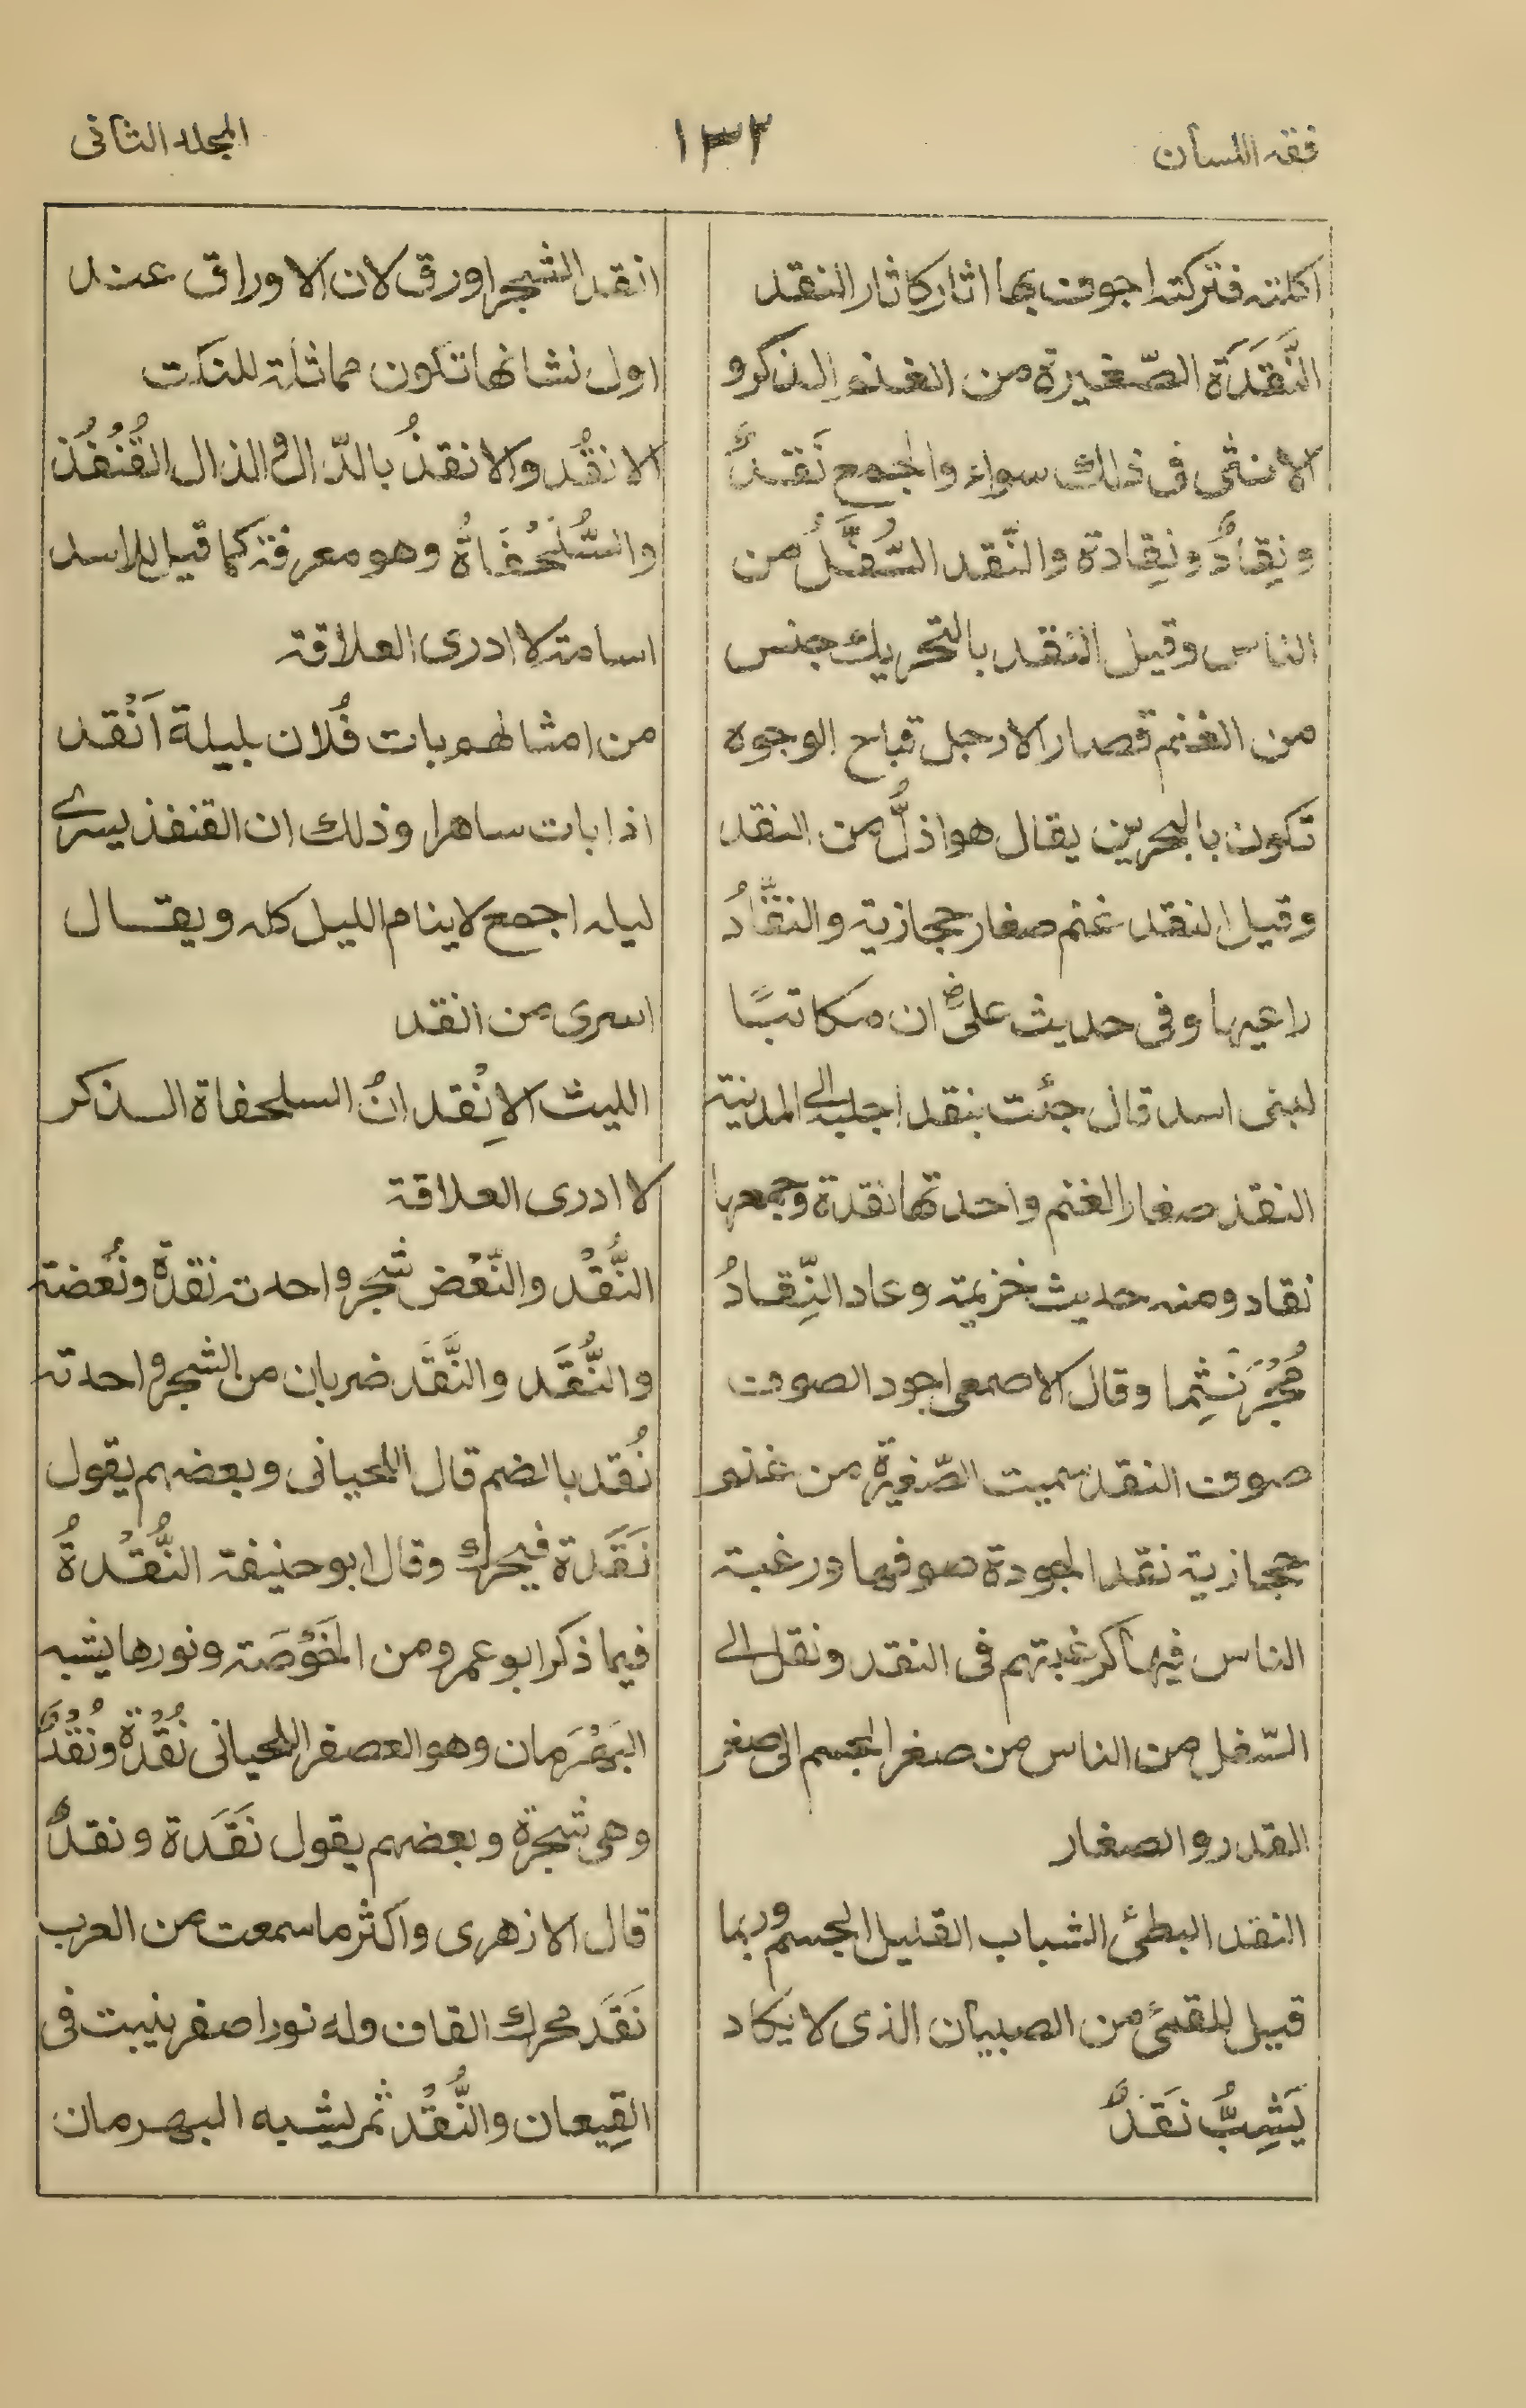 فقه اللسان
١٣٢
المجلد الثانى
اكلته فتركته اجوف بها اثار كاثار النقد
النَّقَدَة الصّغيرة من الغنم الذكر و
الانثى فى ذلك سواء والجمع نَقَدٌ
ونِقادٌ ونِقادة والنّقد السُّفَّلُ من
الناس وقيل النقد بالتحريك جنس
من الغنم قصار الارجل قباح الوجوه
تكون بالبحرين يقال هو اذلُّ من النقد
وقيل النقد غنم صغار حجازية والنقَّادُ
راعيها وفى حديث علىؓ ان مكاتبًا
لبنى اسد قال جئت بنقد اجلبه الى المدينة
النقد صغار الغنم واحدتها نقدة وجمعها
نقاد ومنه حديث خزيمة وعاد النِّقادُ
مُجْرَنْثِما وقال الاصمعى اجود الصوف
صوف النقد سميت الصّغيرة من غنم
حجازية نقد الجودة صوفها ورغبة
الناس فيها كرغبتهم فى النقد ونقل الى
السّفل من الناس من صغر الجسم الى صغر
القدر والصغار
النقد البطئ الشباب القليل الجسم وربما
قيل للقمئ من الصبيان الذى لا يكاد
يَشِبُّ نَقَدٌ
انقد الشجر اورق لان الاوراق عند
اول نشانها تكون مماثلة للنكت
الانقُد والانقذُ بالدّال والذال القُنْفُذ
والسُّلَحْفَاةُ وهو معرفة كما قيل للاسد
اسامة لا ادرى العلاقة
من امثالهم بات فُلان بليلة اَنْقد
اذا بات ساهرا وذلك ان القنفذ يسرے
ليله اجمع لا ينام الليل كله ويقال
اسرى من انقد
الليث الاِنْقدانُ السلحفاة الذكر
لا ادرى العلاقة
النُّقْد والنّعْض شجر واحدته نقدة ونُعْضة
والنُّقَد والنَّقَد ضربان من الشجر واحدته
نُقد بالضم قال اللحيانى وبعضهم يقول
نَقَدة فيحرك وقال ابو حنيفة النُّقْدةُ
فيما ذكر ابو عمرو من الخَوْصَة ونورها يشبه
البَهْرَمان وهو العصفر اللحيانى نُقْدة ونُقْدٌ
وهى شجرة وبعضهم يقول نَقَدة ونقدٌ
قال الازهرى واكثر ما سمعت من العرب
نَقَد محرك القاف وله نور اصفر ينبت فى
القِيعان والنُّقْد ثمر يشبه البهرمان